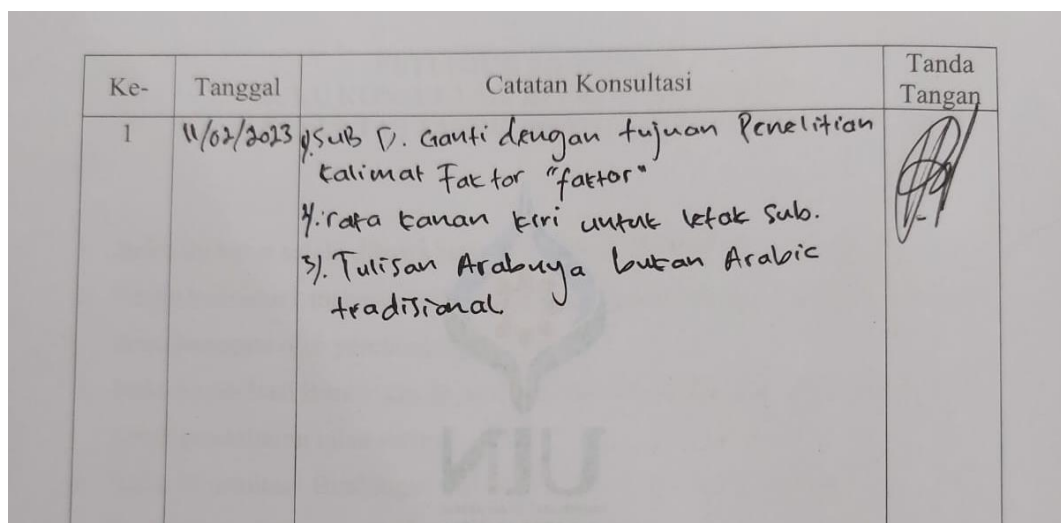 Ke- Tanggal Catatan Konsultasi Tanda Tangan
1 11/02/2023 1). SUB D. Ganti dengan tujuan Penelitian
kalimat Faktor "faktor"
2). rata kanan kiri untuk letak sub.
3). Tulisan Arabnya bukan Arabic
tradisional.
UIN